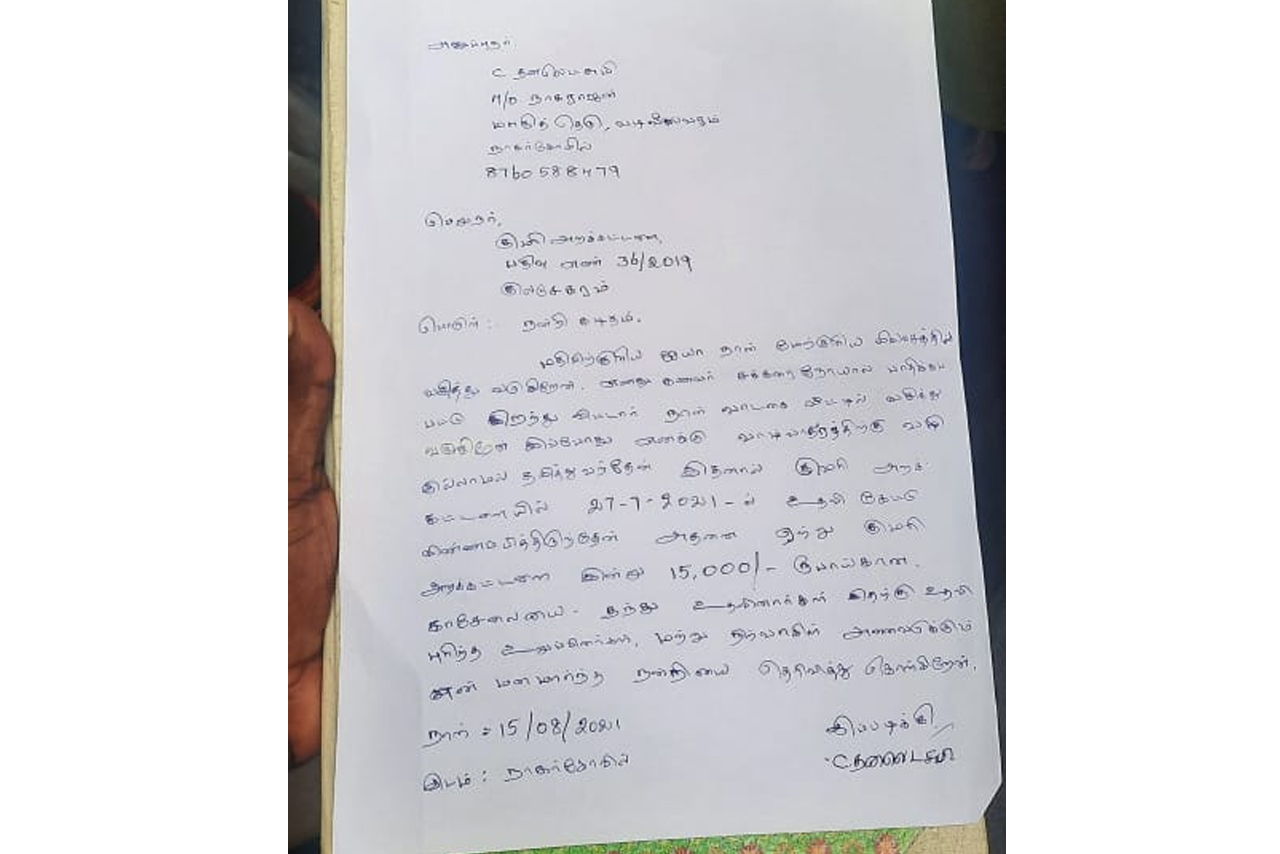 அனுப்புநர்,
C. தனலெட்சுமி
M/O நாகராஜன்
தெரு, வடிவீஸ்வரம்
நாகர்கோவில்
8760588479
பெறுநர்,
குமரி அறக்கட்டளை,
பதிவு எண் 36/2019
பொருள் : நன்றி கடிதம்.
மதிப்பிற்குரிய ஐயா நான் மேற்குறிய விலாசத்தில்
வசித்து வருகிறேன். எனது கணவர் சக்கரை நோயால் பாதிக்கப்
பட்டு இறந்து விட்டார் நான் வாடகை வீட்டில் வசித்து
வருகிறேன் இப்போது எனக்கு வாழ்வாதாரத்திற்கு வழி
இல்லாமல் தவித்து வந்தேன் இதனால் குமரி அறக்
கட்டளையில் 27-7-2021-ல் உதவி கேட்டு
விண்ணப்பித்திருந்தேன் அதனை ஏற்று குமரி
அறக்கட்டளை இன்று 15,000/- ரூபாய்கான
காசோலையை தந்து உதவினார்கள் இதற்கு உதவி
புரிந்த உறுப்பினர்கள், மற்று நிர்வாகிள் அனைவருக்கும்
என் மனமார்ந்த நன்றியை தெரிவித்து கொள்கிறேன்.
நாள் : 15/08/2021
இப்படிக்கு
இடம் : நாகர்கோவில்
C. தனலெட்சுமி